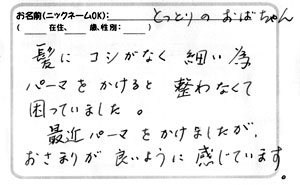 お名前(ニックネームOK): とっとりのおばちゃん
( 在住、 歳、性別: )
髪にコシがなく細い為
パーマをかけると整わなくて
困っていました。
最近パーマをかけましたが、
おさまりが良いように感じています。